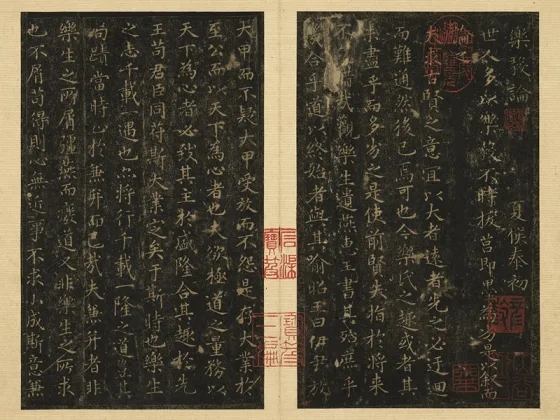 樂毅論 夏侯泰初
世人多以樂毅不時拔莒即墨為劣是以敘而
論之
夫求古賢之意宜以大者遠者先之必迂迴
而難通然後已焉可也今樂氏之趣或者其
未盡乎而多劣之是使前賢失指於將來
不惜哉觀樂生遺燕惠王書其殆庶乎
機合乎道以終始者與其喻昭王曰伊尹放
大甲而不疑大甲受放而不怨是存大業於
至公而以天下為心者也夫欲極道之量務以
天下為心者必致其主於盛隆合其趣於先
王苟君臣同符斯大業定矣于斯時也樂生
之志千載一遇也亦將行千載一隆之道豈其
局蹟當時止於兼并而已哉夫兼并者非
樂生之所屑彊燕而廢道又非樂生之所求
也不屑苟得則心無近事不求小成斯意兼